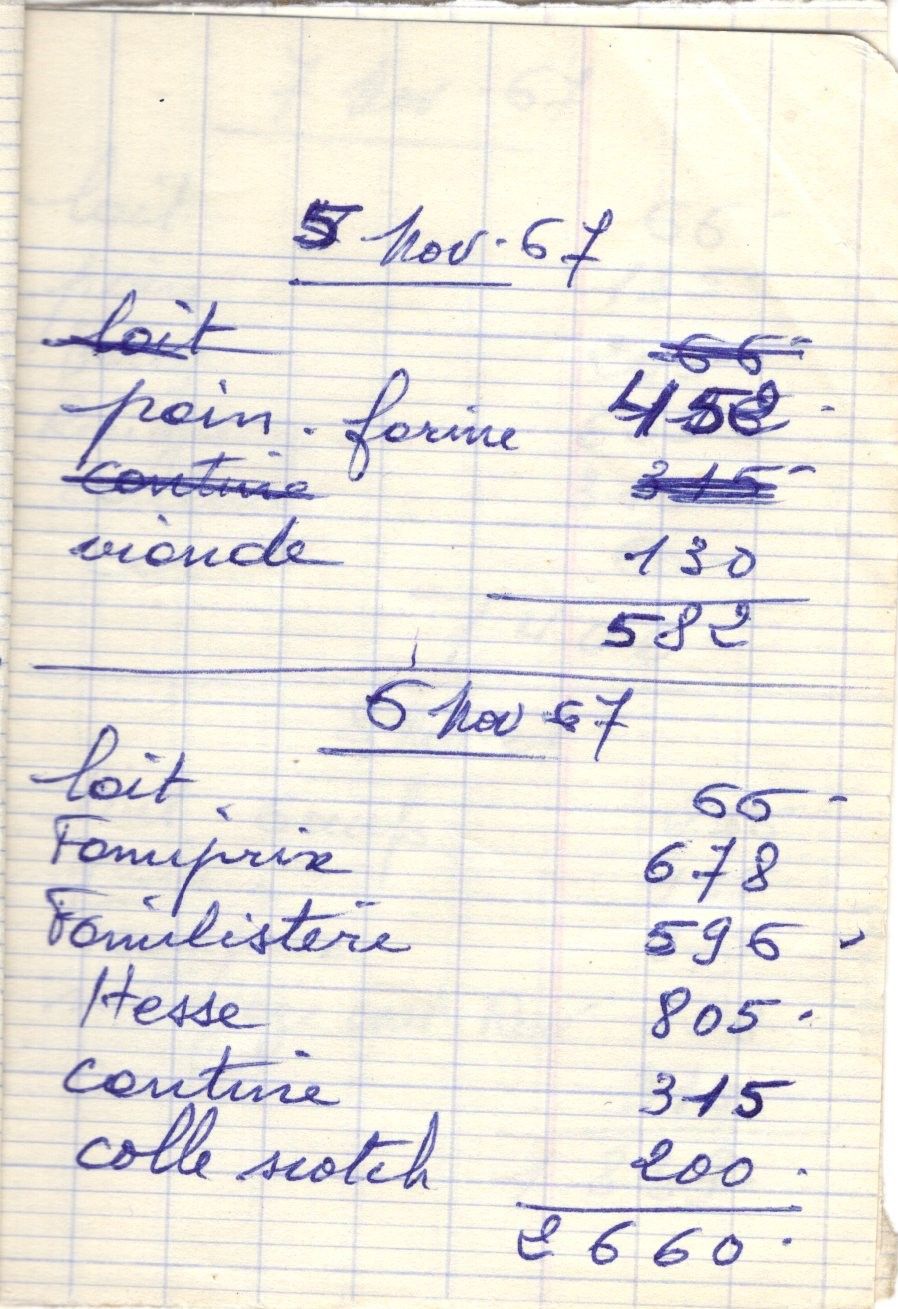 5 Nov. 67
lait 66-
pain. farine 452.
cantine 315-
viande 130
582
6 Nov 67
lait 66-
Famiprix 678
Familistère 596
Hesse 805.
cantine 315
colle scotch 200.
2660.